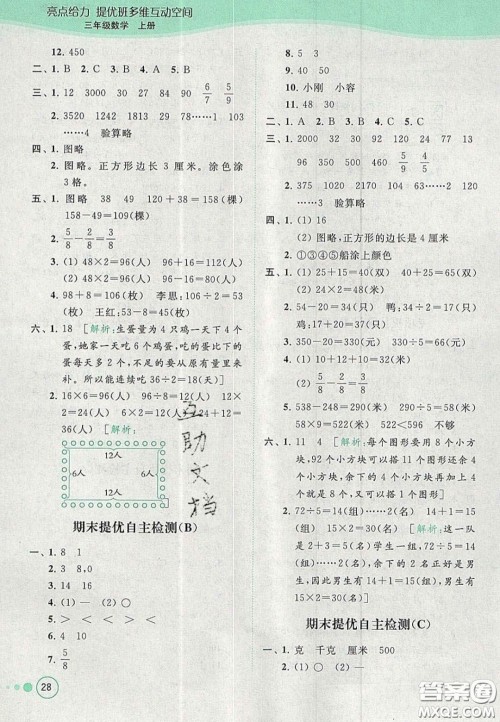 亮点给力 提优班多维互动空间
三年级数学 上册
12. 450
二、1. B 2. C 3. A 4. C 5. B
三、1. 12 3000 30 27 88 90 6/7 5/9
2. 3520 1242 1018 27 28……1 103
……4 验算略
四、1. 图略
2. 图略。正方形边长 3 厘米。涂色涂
3 格。
五、1. 38 49 38 120+38=158(棵)
158-49=109(棵)
2. 5/8-2/8=3/8
3. (1) 48×2=96(人) 96+16=112(人)
(2) 48×2=96(人) 96-16=80(人)
4. 98+8=106(枚) 李思:106÷2=53
(枚) 王红:53-8=45(枚)
六、1. 18 [解析:生蛋量为 4 只鸡一天下 4 个
蛋,她家一天吃 6 个鸡蛋,吃的蛋比下的
蛋每天多 2 个,不足的要从原有量里来
补。所以能连续吃 36÷2=18(天)]
2. 16 2×6=12(人) 6×2=12(人) 12+
12=24(人) 6×2=12(人) 24+12=
36(人) [解析:
12人
6人 6人
12人
]
互
助
文
档
期末提优自主检测(B)
一、1. 8 1
2. 3 8,0
3. 12
4. (1) — (2) ○
5. > < < < >
6. <
7. 5/8
8. 5 40
9. 315
10. 小刚 小容
11. 48 30
二、1. C 2. A 3. B 4. B 5. C
三、1. 2000 32 30 92 120 77 5/9 4/9
2. 375 1020 2170 103 64……2
……3 验算略
四、1. (1) 16
(2) 图略,正方形的边长是 4 厘米
2. ①③④⑤船涂上颜色
五、1. (1) 25+15=40(只) (2) 10+10=20(只)
2. (2) 24×2=48(米)
3. 54-20=34(只) 鸭:34÷2=17(只)
鹅:17+20=37(只)
4. 350-20=330(千克) 330÷5=66(千克)
5. (1) 10+12+10=32(米)
(2) 5/8-2/8=3/8
6. 538-248=290(米) 290-58=232(米)
290+232=522(米) 522<596 不够
六、1. 11 4 [解析:每个图形要用 8 个小方
块,92 个小方块可以搭 11 个图形还余
4 个小方块,余下的 4 个小方块再增加
4 个小方块又可以搭一个图形]
2. 72÷5=14(组)……2(名) 14+1=15
(组) [解析:这一队是
2+3=5(名)学生一组,72÷5=14
(组)……2(名),余下的 2 名正好是男
生,因此男生有 14+1=15(组)]
期末提优自主检测(C)
一、1. 克 千克 厘米 500
2. (1) — (2) ○
28
答案圈
MXQE.COM